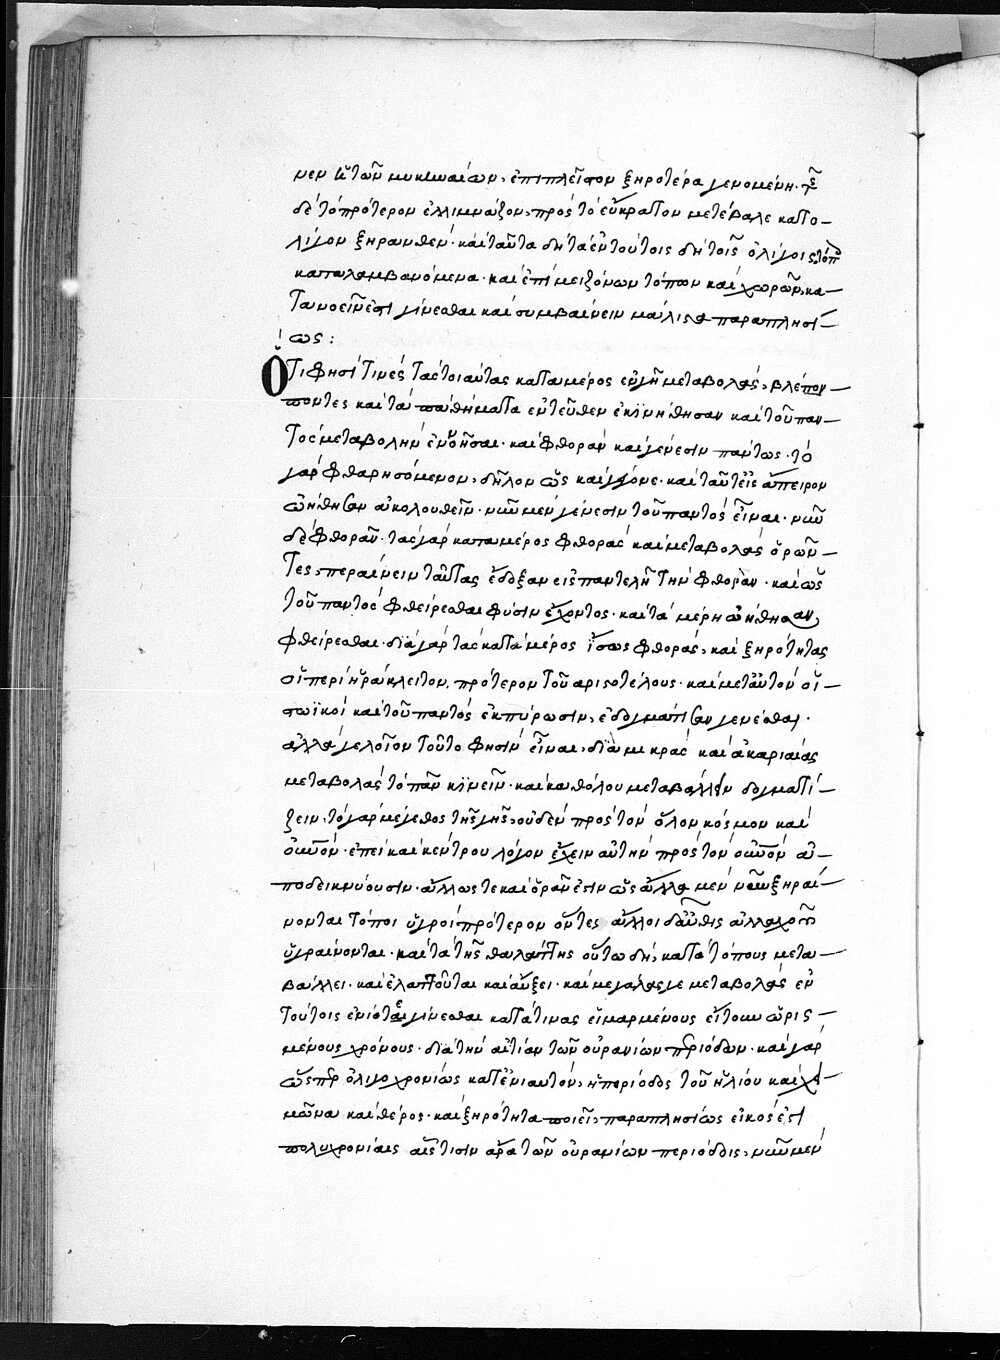 μεν ἡ τῶν μυκηναίων, ἐπιπλεῖστον ξηροτέρα γενομένη· τὸ
δὲ τὸ πρότερον ἐλλιμνάζον, πρὸς τὸ εὔκρατον μετέβαλε κατο-
λίγον ξηρανθέν· καὶ ταῦτα δὴ τὰ ἐν τούτοις δὴ τοῖς ὀλίγοις τόποις
καταλαμβανόμενα· καὶ ἐπὶ μειζόνων τόπων καὶ χωρῶν, κα-
τανοεῖν ἐστι γίνεσθαι καὶ συμβαίνειν μάλιστα παραπλησί-
ως:
Ὅτι φησὶ τινὲς τὰς τοιαύτας καταμέρος ἐν γῇ μεταβολὰς, βλέπον-
ποντες καὶ τὰ παθήματα ἐντεῦθεν ἐκινήθησαν καὶ τοῦ παν-
τὸς μεταβολὴν ἐννοῆσαι· καὶ φθορὰν καὶ γένεσιν παντως· τὸ
γὰρ φθαρησόμενον, δῆλον ὡς καὶ γέγονε· καὶ ταῦτ' εἰς ἄπειρον
ὠήθησαν ἀκολουθεῖν· νῦν μὲν γένεσιν τοῦ παντὸς εἶναι· νῦν
δὲ φθορᾶν· τὰς γὰρ καταμέρος φθορὰς καὶ μεταβολὰς ὁρῶν-
τες, περαίνειν ταύτας ἔδοξαν εἰς παντελῆ τὴν φθορὰν· καὶ ὡς
τοῦ παντὸς φθείρεσθαι φύσιν ἔχοντος· καὶ τὰ μέρη ὠήθησαν,
φθείρεσθαι· διὰ γὰρ τὰς κατὰ μέρος ἴσως φθορὰς, καὶ ξηρότητας
οἱ περὶ ἡράκλειτον, πρότερον τοῦ αριστοτέλους· καὶ μετ' αὐτὸν οἱ
στωϊκοὶ καὶ τοῦ παντὸς ἐκπύρωσιν, ἐδογμάτισαν γενέσθαι·
ἀλλὰ γελοῖον τοῦτο φησὶν εἶναι, διὰ μικρὰς καὶ ἀκαριαίας
μεταβολὰς τὸ πᾶν κινεῖν· καὶ καθόλου μεταβάλλειν δογματί-
ζειν, τὸ γὰρ μέγεθος τῆς γῆς, οὐδὲν πρὸς τὸν ὅλον κόσμον καὶ
οὐρανόν· ἐπεὶ καὶ κέντρου λόγον ἔχειν αὐτὴν πρὸς τὸν οὐρανὸν ἀ-
ποδεικνύουσιν· ἄλλως τε καὶ ὁρᾶν ἐστιν ὡς ἄλλα μὲν νῦν ξηραί-
νονται τόποι ὑγροὶ πρότερον ὄντες ἄλλοι δ' αὖθις ἀλλαχοῦ
ὑγραίνονται· καὶ τὰ τῆς θαλάττης οὕτω δὴ, κατὰ τόπους μετα-
βάλλει· καὶ ἐλαττοῦται καὶ αὔξει· καὶ μεγάλας γε μεταβολὰς ἐν
τούτοις ἐνίοτε γίνεσθαι κατάτινας εἱμαρμένους εἴτουν ὡρισ-
μένους χρόνους· διὰ τὴν αἰτίαν τῶν οὐρανίων περιόδων· καὶ γὰρ
ὥσπερ ὀλιγοχρονίως κατ' ἐνιαυτὸν, ἡ περίοδος τοῦ ἡλίου καὶ χει-
μῶνα καὶ θέρος· καὶ ξηρότητα ποιεῖ, παραπλησίως εἰκός ἐστι
πολυχρονίαις αἷς τισιν ἄρα τῶν οὐρανίων περιόδοις, νῦν μὲν